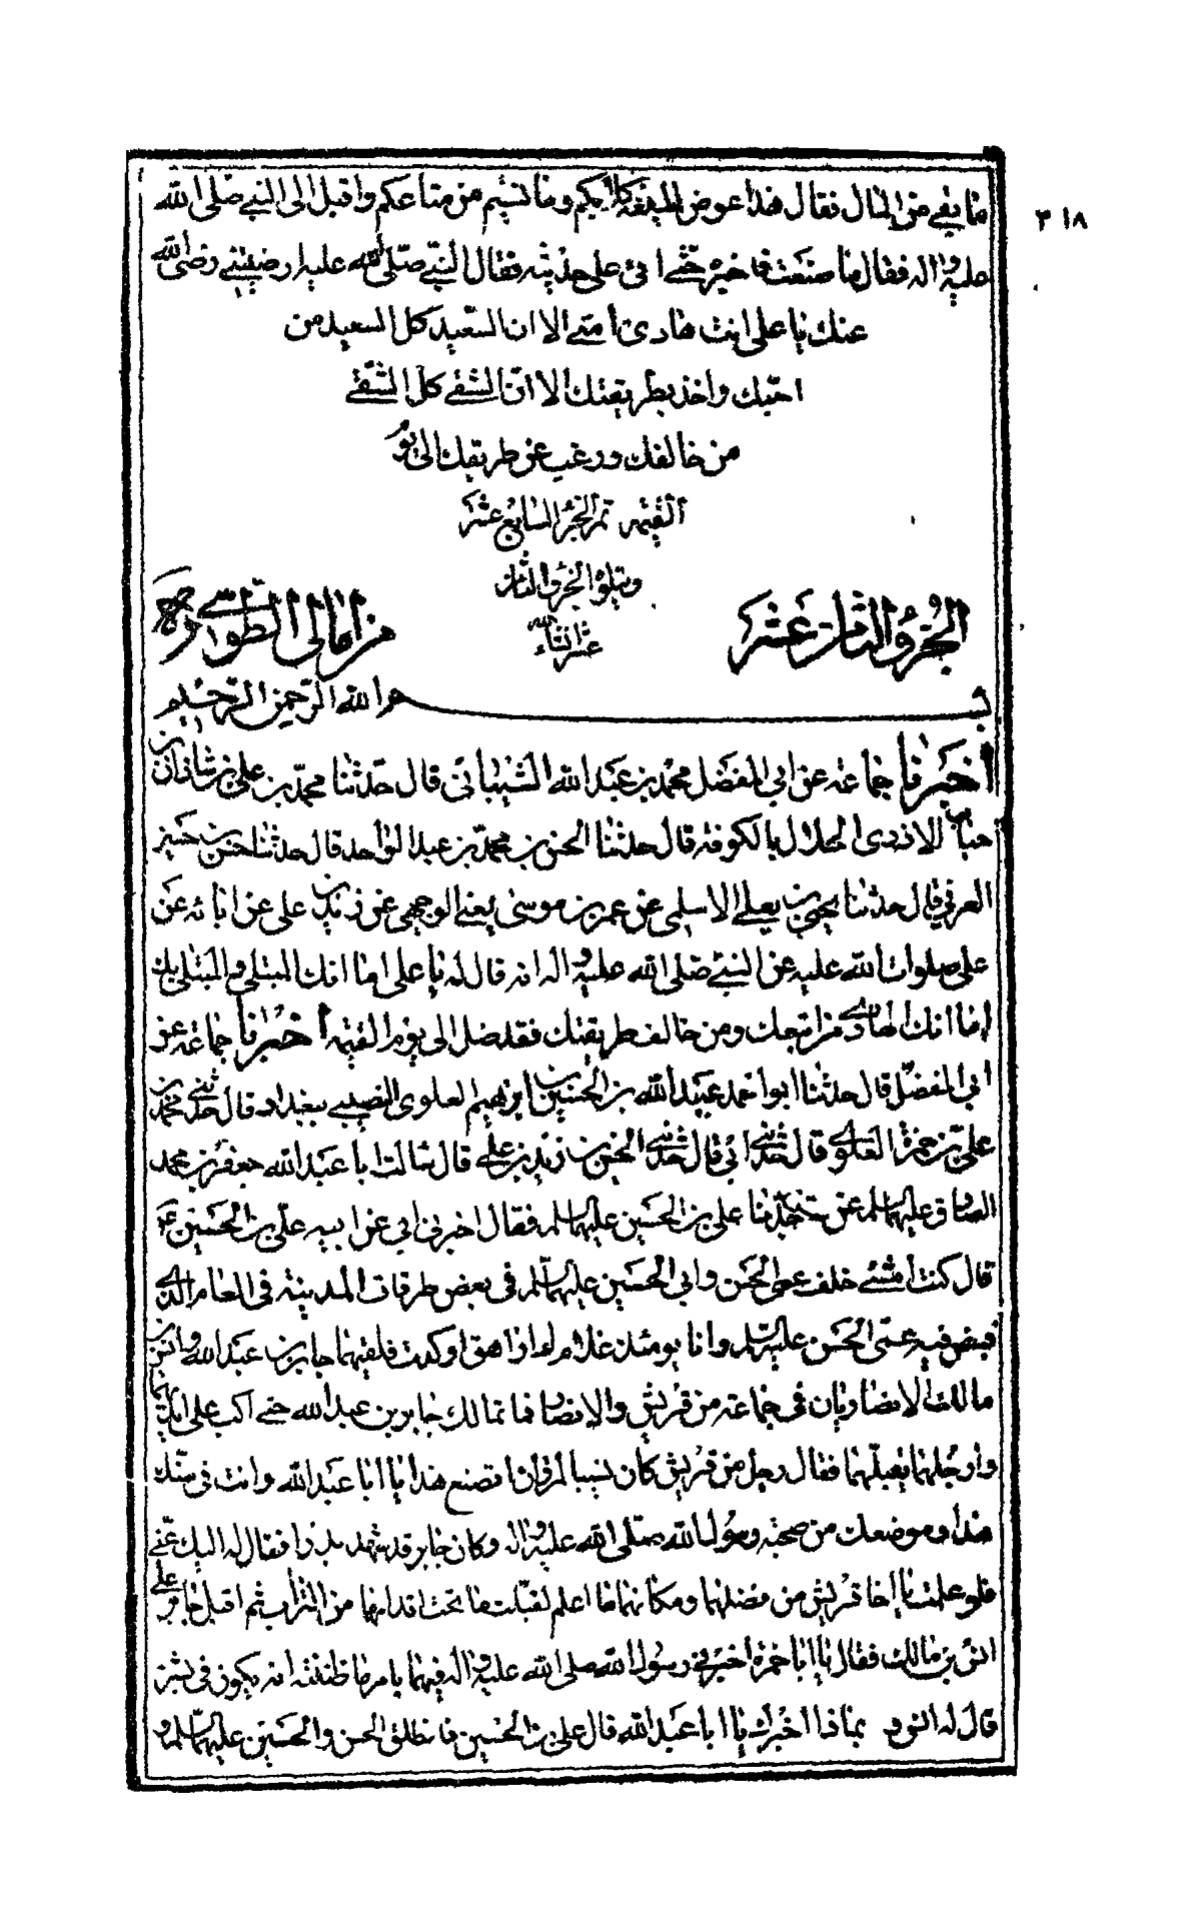 ٣١٨
ما بقي من المال فقال هذا عوض لميلغة كلابكم وما نسيتم من متاعكم واقبل الى النبي صلى الله
عليه واله فقال ما صنعت فاخبره حتى اتى على حديثه فقال النبي صلى الله عليه ارضيتني رضى الله
عنك يا علي انت هادي امتي الا ان السعيد كل السعيد من
احبك واخذ بطريقتك الا ان الشقي كل الشقي
من خالفك ورغب عن طريقك الى يوم
القيمه تم الجزء السابع عشر
ويتلوه الجزء الثامن
عشر انشاء الله
الجزء الثامن عشر من امالى الطوسي ره
بسم الله الرحمن الرحيم
أخبرنا جماعة عن ابي المفضل محمد بن عبد الله الشيباني قال حدثنا محمد بن علي بن شاذان بن
حباب الازدي الخلال بالكوفة قال حدثنا الحسن بن محمد بن عبد الواحد قال حدثنا حسن بن حسين
العرني قال حدثنا يحيى بن يعلى الاسلمي عن عمر بن موسى يعني الوجيهي عن زيد بن علي عن ابائه عن
علي صلوات الله عليه عن النبي صلى الله عليه واله انه قال له يا علي اما انك المبتلى والمبتلى بك
اما انك الهادي من اتبعك ومن خالف طريقتك فقد ضل الى يوم القيمه أخبرنا جماعة عن
ابي المفضل قال حدثنا ابو احمد عبيد الله بن الحسين بن ابرهيم العلوي النصيبي ببغداد قال حدثني محمد بن
علي بن حمزة العلوي قال حدثني ابي قال حدثني الحسين بن زيد بن علي قال سالت ابا عبد الله جعفر بن محمد
الصادق عليهما السلم عن سن جدنا علي بن الحسين عليهما السلم فقال اخبرني ابي عن ابيه علي بن الحسين ع
قال كنت امشي خلف عمي الحسن وابي الحسين عليهما السلم في بعض طرقات المدينة في العام الذي
قبض فيه عمي الحسن عليه السلم وانا يومئذ غلام لم اراهق او كدت فلقيهما جابر بن عبد الله وانس بن
مالك الانصاريان في جماعة من قريش والانصار فما تمالك جابر بن عبد الله حتى اكب على ايديهما
وارجلهما يقبلهما فقال رجل من قريش كان نسيبا لمروان اتصنع هذا يا ابا عبد الله وانت في سنك
هذا وموضعك من صحبة رسول الله صلى الله عليه واله وكان جابر قد شهد بدرا فقال له اليك عني
فلو علمت يا اخا قريش من فضلهما ومكانهما ما اعلم لقبلت ما تحت اقدامهما من التراب ثم اقبل جابر على
انس بن مالك فقال يا ابا حمزة اخبرني رسول الله صلى الله عليه واله فيهما بامر ما ظننته انه يكون في بشر
قال له انس و بماذا اخبرك يا ابا عبد الله قال علي بن الحسين فانطلق الحسن والحسين عليهما السلم و